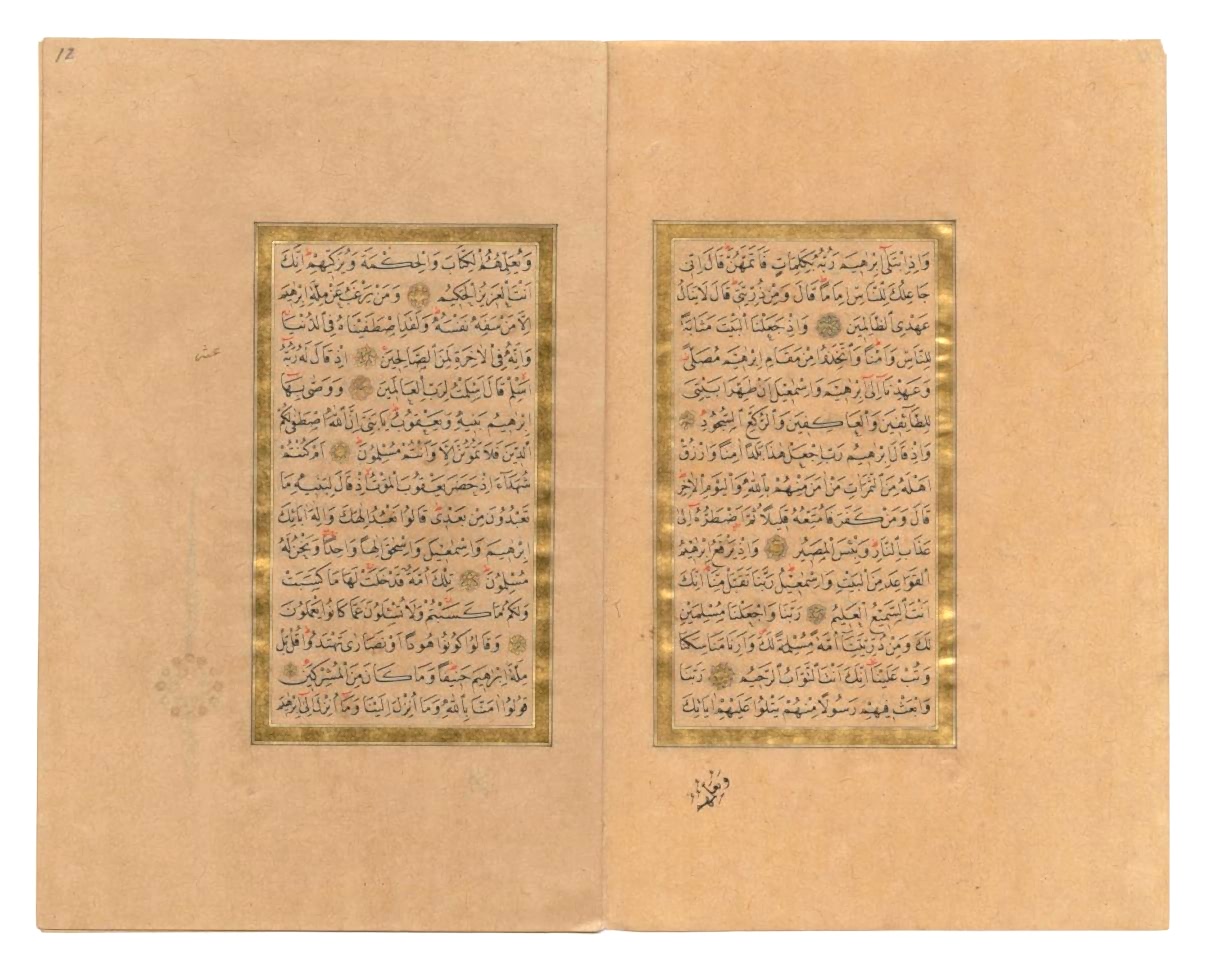 وَاِذِ ابْتَلٰى اِبْرٰهِيمَ رَبُّهُ بِكَلِمَاتٍ فَاَتَمَّهُنَّ قَالَ اِنِّى
جَاعِلُكَ لِلنَّاسِ اِمَامًا قَالَ وَمِنْ ذُرِّيَّتِى قَالَ لَا يَنَالُ
عَهْدِى الظَّالِمِينَ وَاِذْ جَعَلْنَا الْبَيْتَ مَثَابَةً
لِلنَّاسِ وَاَمْنًا وَاتَّخِذُوا مِنْ مَقَامِ اِبْرٰهِيمَ مُصَلًّى
وَعَهِدْنَا اِلٰى اِبْرٰهِيمَ وَاِسْمٰعِيلَ اَنْ طَهِّرَا بَيْتِىَ
لِلطَّائِفِينَ وَالْعَاكِفِينَ وَالرُّكَّعِ السُّجُودِ
وَاِذْ قَالَ اِبْرٰهِيمُ رَبِّ اجْعَلْ هٰذَا بَلَدًا اٰمِنًا وَارْزُقْ
اَهْلَهُ مِنَ الثَّمَرَاتِ مَنْ اٰمَنَ مِنْهُمْ بِاللّٰهِ وَالْيَوْمِ الْاٰخِرِ
قَالَ وَمَنْ كَفَرَ فَاُمَتِّعُهُ قَلِيلًا ثُمَّ اَضْطَرُّهُ اِلٰى
عَذَابِ النَّارِ وَبِئْسَ الْمَصِيرُ وَاِذْ يَرْفَعُ اِبْرٰهِيمُ
الْقَوَاعِدَ مِنَ الْبَيْتِ وَاِسْمٰعِيلُ رَبَّنَا تَقَبَّلْ مِنَّا اِنَّكَ
اَنْتَ السَّمِيعُ الْعَلِيمُ رَبَّنَا وَاجْعَلْنَا مُسْلِمَيْنِ
لَكَ وَمِنْ ذُرِّيَّتِنَا اُمَّةً مُسْلِمَةً لَكَ وَاَرِنَا مَنَاسِكَنَا
وَتُبْ عَلَيْنَا اِنَّكَ اَنْتَ التَّوَّابُ الرَّحِيمُ رَبَّنَا
وَابْعَثْ فِيهِمْ رَسُولًا مِنْهُمْ يَتْلُوا عَلَيْهِمْ اٰيَاتِكَ
وَيُعَلِّمُهُمُ
12
وَيُعَلِّمُهُمُ الْكِتَابَ وَالْحِكْمَةَ وَيُزَكِّيهِمْ اِنَّكَ
اَنْتَ الْعَزِيزُ الْحَكِيمُ وَمَنْ يَرْغَبُ عَنْ مِلَّةِ اِبْرٰهِيمَ
اِلَّا مَنْ سَفِهَ نَفْسَهُ وَلَقَدِ اصْطَفَيْنَاهُ فِى الدُّنْيَا
وَاِنَّهُ فِى الْاٰخِرَةِ لَمِنَ الصَّالِحِينَ اِذْ قَالَ لَهُ رَبُّهُ
اَسْلِمْ قَالَ اَسْلَمْتُ لِرَبِّ الْعَالَمِينَ وَوَصّٰى بِهَا
اِبْرٰهِيمُ بَنِيهِ وَيَعْقُوبُ يَا بَنِىَّ اِنَّ اللّٰهَ اصْطَفٰى لَكُمُ
الدِّينَ فَلَا تَمُوتُنَّ اِلَّا وَاَنْتُمْ مُسْلِمُونَ اَمْ كُنْتُمْ
شُهَدَاءَ اِذْ حَضَرَ يَعْقُوبَ الْمَوْتُ اِذْ قَالَ لِبَنِيهِ مَا
تَعْبُدُونَ مِنْ بَعْدِى قَالُوا نَعْبُدُ اِلٰهَكَ وَاِلٰهَ اٰبَائِكَ
اِبْرٰهِيمَ وَاِسْمٰعِيلَ وَاِسْحٰقَ اِلٰهًا وَاحِدًا وَنَحْنُ لَهُ
مُسْلِمُونَ تِلْكَ اُمَّةٌ قَدْ خَلَتْ لَهَا مَا كَسَبَتْ
وَلَكُمْ مَا كَسَبْتُمْ وَلَا تُسْئَلُونَ عَمَّا كَانُوا يَعْمَلُونَ
وَقَالُوا كُونُوا هُودًا اَوْ نَصَارٰى تَهْتَدُوا قُلْ بَلْ
مِلَّةَ اِبْرٰهِيمَ حَنِيفًا وَمَا كَانَ مِنَ الْمُشْرِكِينَ
قُولُوا اٰمَنَّا بِاللّٰهِ وَمَا اُنْزِلَ اِلَيْنَا وَمَا اُنْزِلَ اِلٰى اِبْرٰهِيمَ
عشر